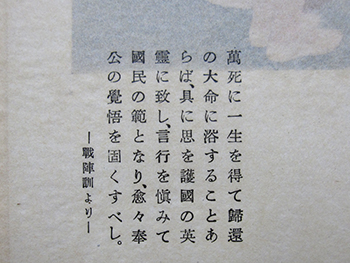 萬死に一生を得て歸還
の大命に浴することあ
らば、具に思を護國の英
靈に致し、言行を愼みて
國民の範となり、愈々奉
公の覺悟を固くすべし。
―戰陣訓より―